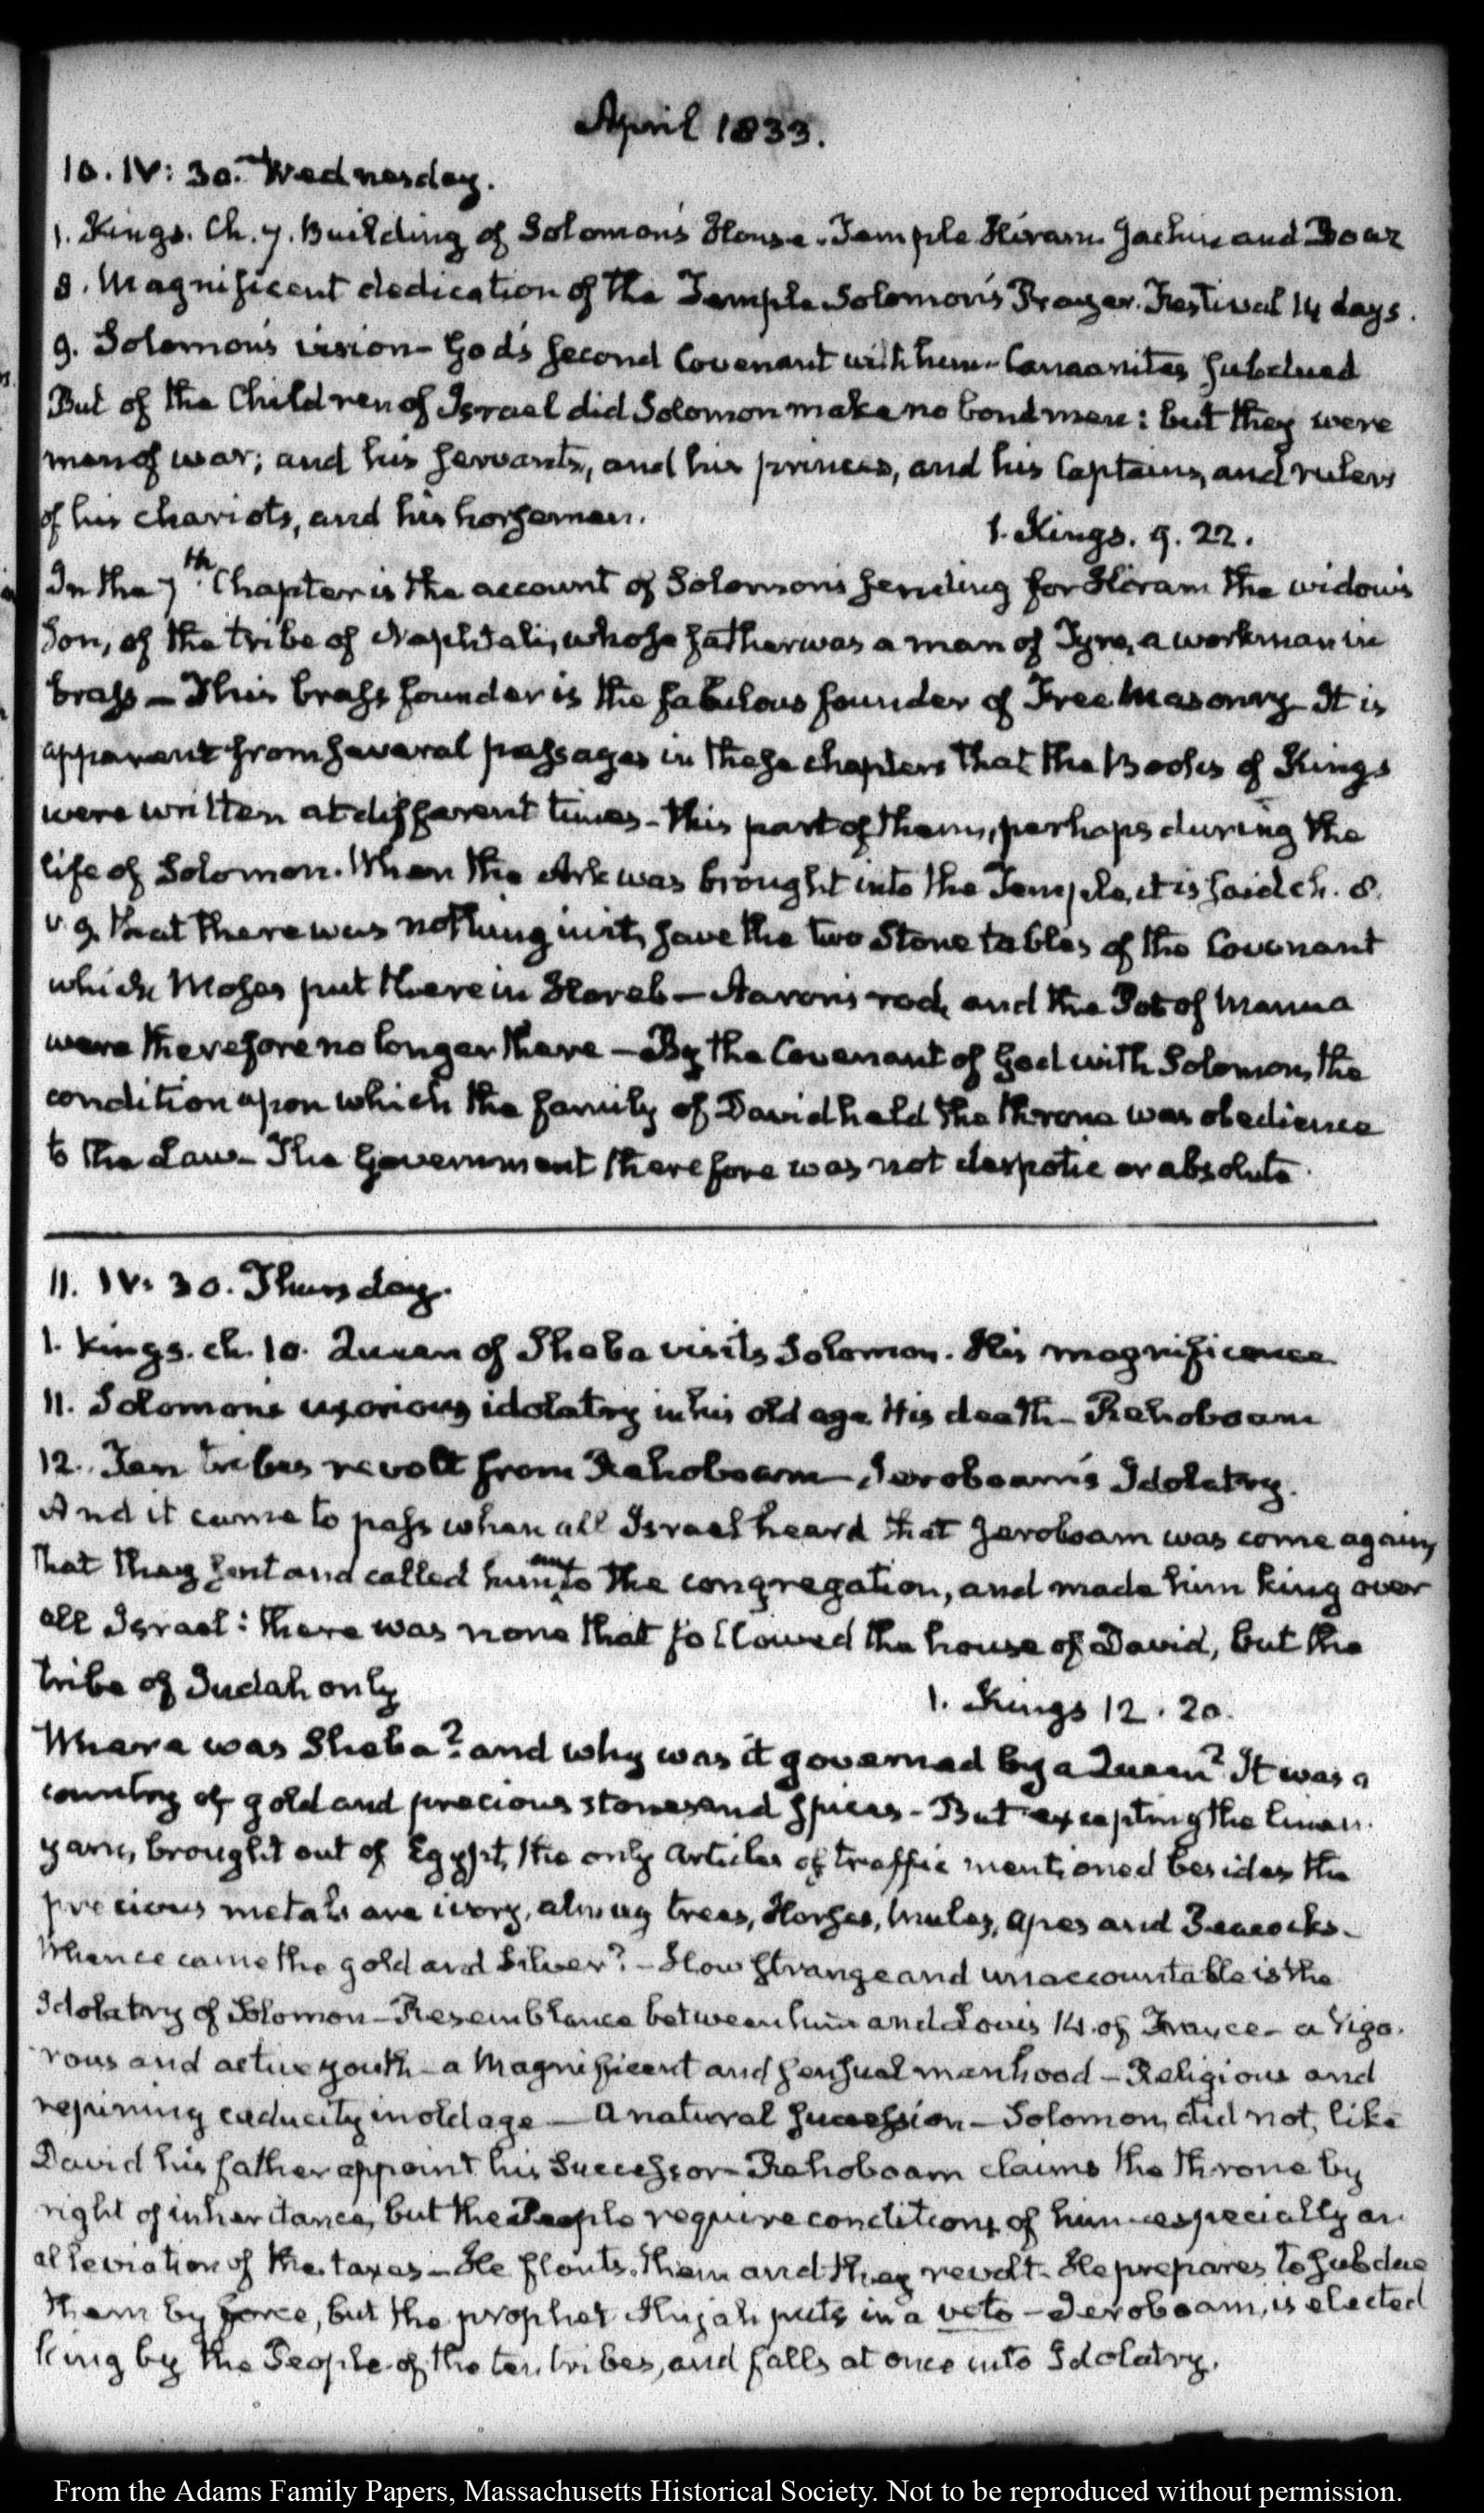 April 1833.
10. IV: 30. Wednesday.
1. Kings. Ch. 7. Building of Solomon's House. Temple Hiram. Jachin and Boaz
8. Magnificent dedication of the Temple Solomon's Prayer. Festival 14 days.
9. Solomon's vision - God's second Covenant with him - Canaanites subdued
But of the Children of Israel did Solomon make no bondmen: but they were
men of war; and his servants, and his princes, and his Captains, and rulers
of his chariots, and his horsemen.
1. Kings. 9. 22.
In the 7th Chapter is the account of Solomon's sending for Hiram the widow's
Son, of the tribe of Naphtali, whose father was a man of Tyre, a workman in
brass — This brass founder is the fabulous founder of Free Masonry - It is
apparent from several passages in these chapters that the Books of Kings
were written at different times - this part of them, perhaps during the
life of Solomon. When the Ark was brought into the Temple, it is said ch. 8.
v. 9. that there was nothing in it, save the two Stone tables of the Covenant
which Moses put there in Horeb — Aaron's rod, and the Pot of Manna
were therefore no longer there — By the Covenant of God with Solomon, the
condition upon which the family of David held the throne was obedience
to the Law - The Government therefore was not despotic or absolute.
11. IV: 30. Thursday.
1. Kings. ch. 10. Queen of Sheba visits Solomon. His magnificence
11. Solomon's uxorious idolatry in his old age His death - Rehoboam
12. Ten tribes revolt from Rehoboam - Jeroboam's Idolatry.
And it came to pass when all Israel heard that Jeroboam was come again,
that they sent and called him unto the congregation, and made him king over
all Israel: there was none that followed the house of David, but the
tribe of Judah only
1. Kings 12. 20.
Where was Sheba? and why was it governed by a Queen? It was a
country of gold and precious stones and spices - But excepting the linen
yarn, brought out of Egypt, the only articles of traffic mentioned besides the
precious metals are ivory, almug trees, Horses, Mules, apes and Peacocks -
Whence came the gold and Silver? - How strange and unaccountable is the
Idolatry of Solomon - Resemblance between him and Louis 14. of France - a Vigo-
rous and active youth - a Magnificent and sensual manhood - Religious and
repining caducity in old age — A natural succession - Solomon, did not, like
David his father appoint his Successor - Rehoboam claims the throne by
right of inheritance, but the People require conditions of him - especially an
alleviation of the taxes - He flouts them and they revolt - He prepares to subdue
them by force, but the prophet Ahijah puts in a veto - Jeroboam, is elected
king by the People of the ten tribes, and falls at once into Idolatry.
From the Adams Family Papers, Massachusetts Historical Society. Not to be reproduced without permission.